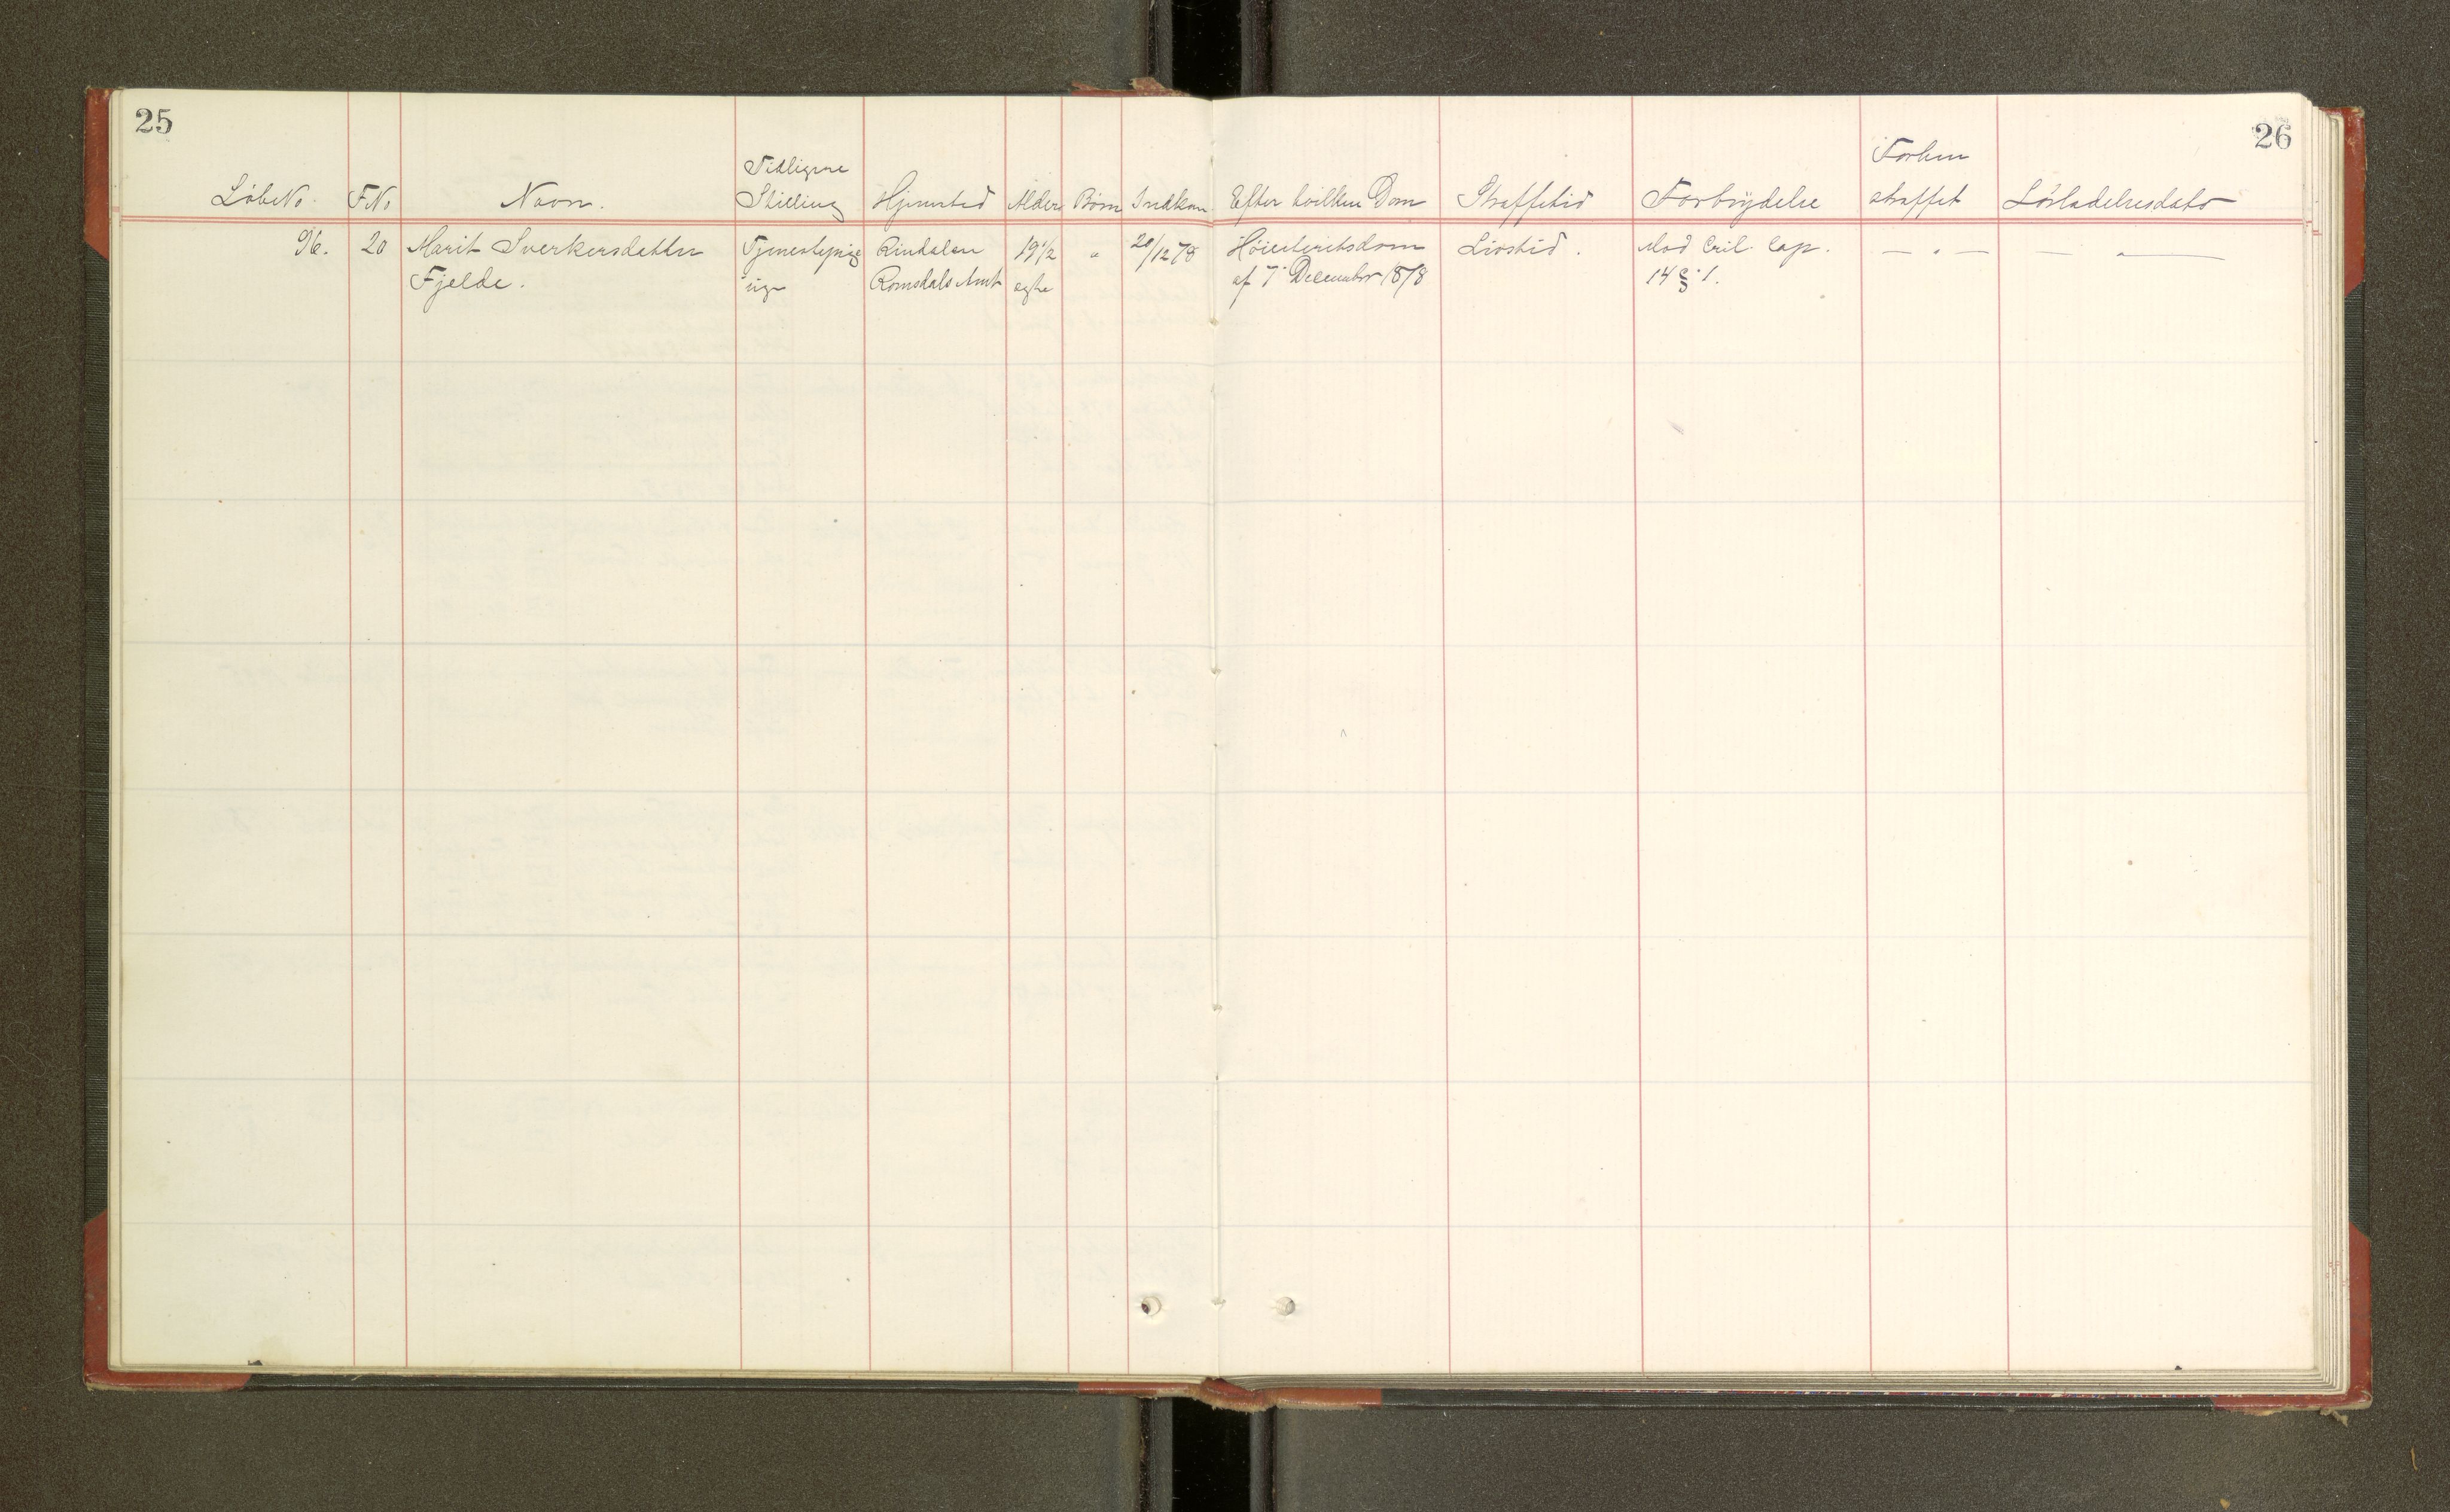 25
26
Tidligere
Forhen
LöbeNo. FNo Navn. Stilling Hjemsted Alder Börn Indkom Efter hvilken Dom Straffetid Forbrydelse straffet Lösladelsesdato
96. 20 Marit Sverkersdatter Tjenestepige Rindalen 19 1/2 " 20/12 78 Höiesteretsdom Livstid. Mod Cril. Cap. — " — — " —
Fjelde. ugi Romsdals Amt ægte af 7 December 1878 14 § 1.